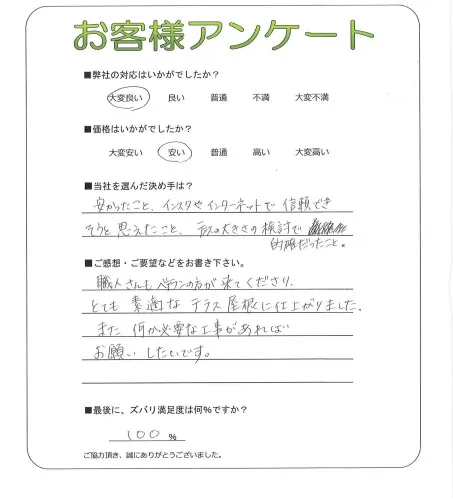 お客様アンケート
■弊社の対応はいかがでしたか?
大変良い 良い 普通 不満 大変不満
■価格はいかがでしたか?
大変安い 安い 普通 高い 大変高い
■当社を選んだ決め手は?
安かったこと、インスタやインターネットで信頼でき
そうと思えたこと、テラスの大きさの検討で
的確だったこと。
■ご感想・ご要望などをお書き下さい。
職人さんもベテランの方が来てくださり、
とても素適なテラス屋根に仕上がりました。
また何か必要な工事があれば
お願いしたいです。
■最後に、ズバリ満足度は何%ですか?
100 %
ご協力頂き、誠にありがとうございました。